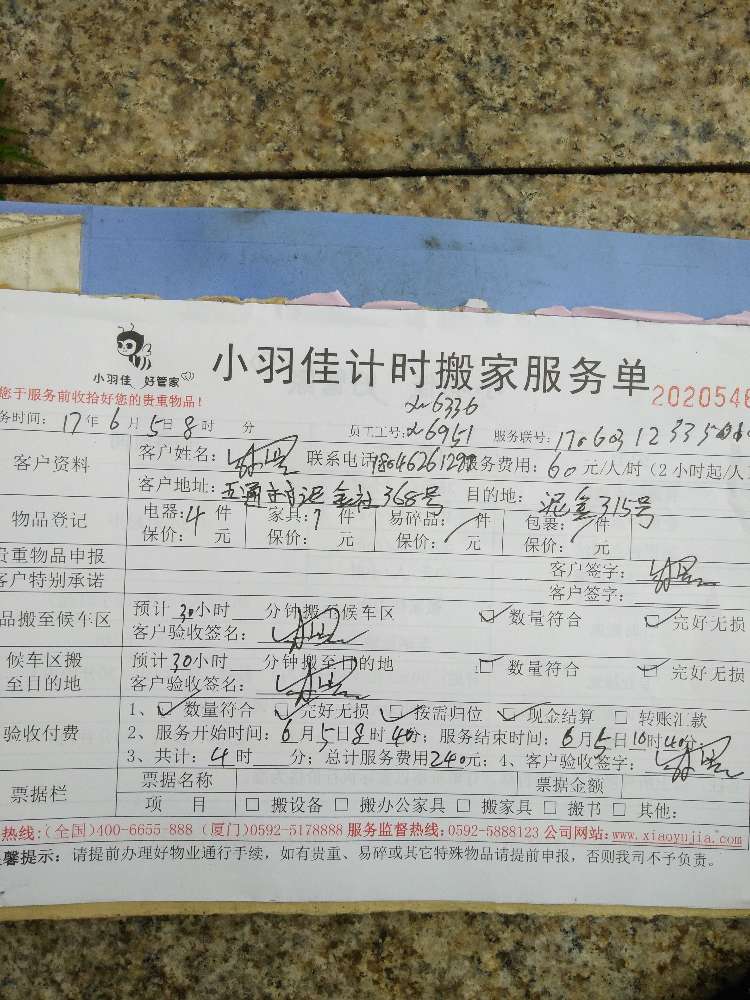 小羽佳 好管家
小羽佳计时搬家服务单
2020546
您于服务前收拾好您的贵重物品！
6336
务时间：17年6月5日8时 分 员工工号：6951 服务联号：
客户资料
客户姓名： 联系电话 服务费用：60元/人/时（2小时起/人
客户地址：五通村泥金社368号 目的地：泥金315号
物品登记
电器：4件 家具：7件 易碎品：／件 包裹：／件
保价： 元 保价： 元 保价： 元 保价： 元
贵重物品申报 客户签字：
客户特别承诺 客户签字：
品搬至候车区
预计30小时 分钟搬至候车区 ☑数量符合 ☑完好无损
客户验收签名：
候车区搬
至目的地
预计30小时 分钟搬至目的地 □数量符合 □完好无损
客户验收签名：
验收付费
1、☑数量符合 ☑完好无损 ☑按需归位 ☑现金结算 □转账汇款
2、服务开始时间：6月5日8时40分；服务结束时间：6月5日10时40分；
3、共计：4时 分；总计服务费用240元；4、客户验收签字：
票据栏
票据名称 票据金额
项 目 □搬设备 □搬办公家具 □搬家具 □搬节 □其他：
热线：(全国)400-6655-888 (厦门)0592-5178888 服务监督热线：0592-5888123 公司网站：www.xiaoyujia.com
馨提示：请提前办理好物业通行手续，如有贵重、易碎或其它特殊物品请提前申报，否则我司不予负责。